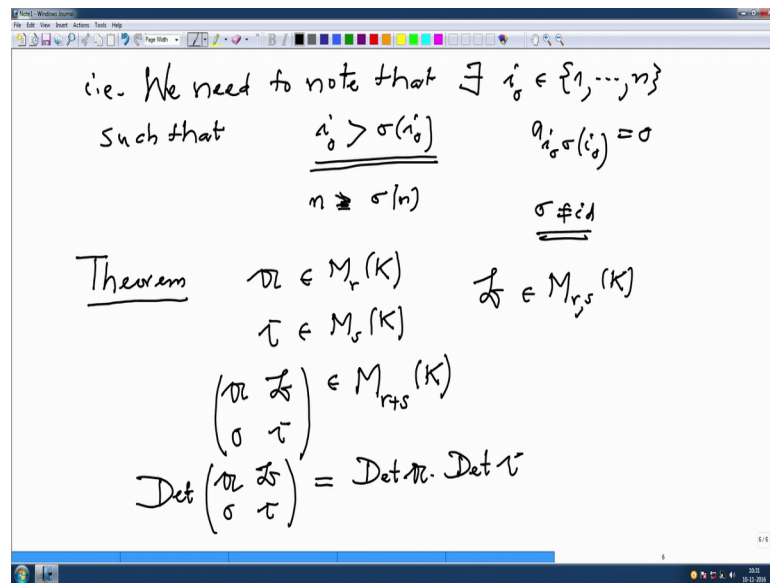 Note1 - Windows Journal
File Edit View Insert Actions Tools Help
Page Width
B I
i.e. We need to note that ∃ i₀ ∈ {1, ..., n}
such that i₀ > σ(i₀) a_{i₀ σ(i₀)} = 0
n ≥ σ(n) σ ≠ id
Theorem 𝔄 ∈ M_r(K) 𝔅 ∈ M_{r,s}(K)
ℭ ∈ M_s(K)
(𝔄 𝔅
0 ℭ) ∈ M_{r+s}(K)
Det (𝔄 𝔅
0 ℭ) = Det 𝔄 · Det ℭ
6/6
6
10:31
10-11-2016